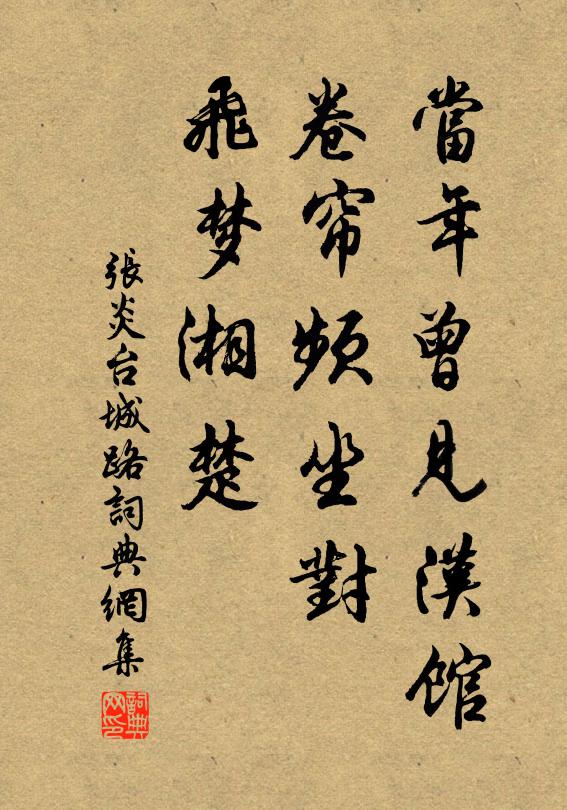 當年曾見漢館
卷帘頻坐對
飛梦湘楚
張炎台城路詞典網集
詞典网印